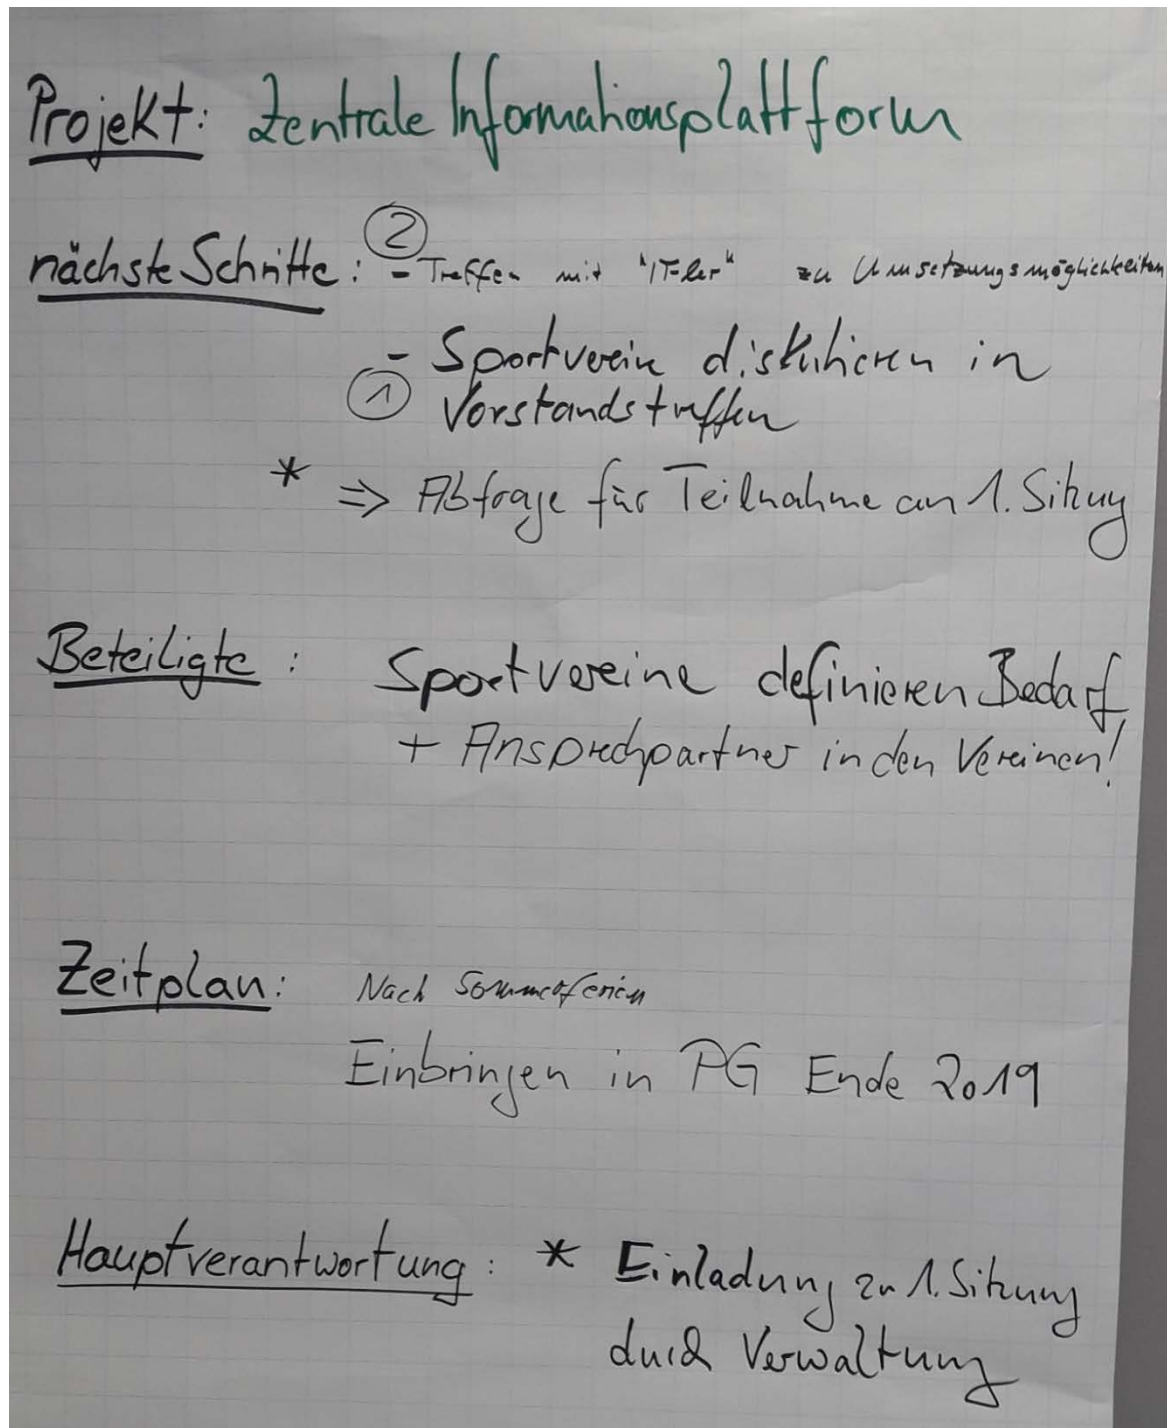 Projekt: Zentrale Informationsplattform
②
nächste Schritte: - Treffen mit "IT-ler" zu Umsetzungsmöglichkeiten
- Sportvereine diskutieren in
① Vorstandstreffen
* => Abfrage für Teilnahme an 1. Sitzung
Beteiligte: Sportvereine definieren Bedarf
+ Ansprechpartner in den Vereinen!
Zeitplan: Nach Sommerferien
Einbringen in PG Ende 2019
Hauptverantwortung: * Einladung zu 1. Sitzung
durch Verwaltung